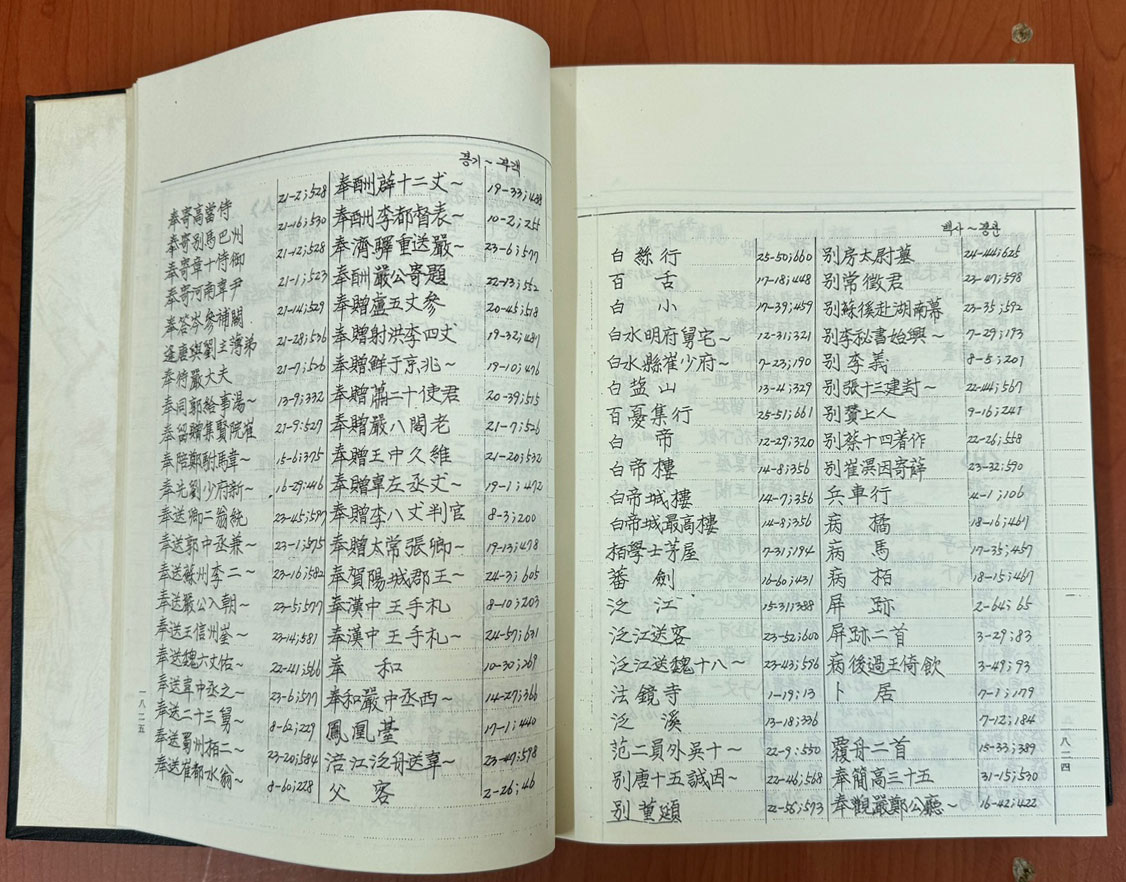 백사~봉관
白絲行 25-50;660
百舌 17-18;448
白小 17-39;459
白水明府舅宅~ 12-31;321
白水縣崔少府~ 7-23;190
白盐山 13-4;329
百憂集行 25-51;661
白帝 12-29;320
白帝樓 14-8;356
白帝城樓 14-7;356
白帝城最高樓 14-8;356
栢學士茅屋 7-31;194
蕃劍 16-60;431
泛江 15-31;388
泛江送客 23-52;600
泛江送魏十八~ 23-43;596
法鏡寺 1-19;13
泛溪 13-18;336
范二員外吳十~ 22-9;550
別唐十五誡因~ 22-46;568
別董頲 22-56;573
別房太尉墓 24-44;625
別常徵君 23-47;598
別蘇徯赴湖南幕 23-35;592
別李秘書始興~ 7-29;193
別李義 8-5;201
別張十三建封~ 22-44;567
別贊上人 9-16;241
別蔡十四著作 22-26;558
別崔潩因寄薛 23-32;590
兵車行 4-1;106
病橘 18-16;467
病馬 17-35;457
病栢 18-15;467
屏跡 2-64;65
屏跡二首 3-29;83
病後過王倚飮 3-49;93
卜居 7-1;179
7-12;184
覆舟二首 15-33;389
奉簡高三十五 31-15;530
奉觀嚴鄭公廳~ 16-42;422
一八二四
봉기~부객
奉寄高當侍 21-2;528
奉寄別馬巴州 21-16;530
奉寄章十侍御 21-12;528
奉寄河南韋尹 21-1;523
奉答岑參補闕 21-14;529
逢唐興劉主簿弟 21-28;536
奉待嚴大夫 21-7;526
奉同郭給事湯~ 13-9;332
奉留贈集賢院崔 21-9;527
奉陪鄭駙馬韋~ 15-6;375
奉先劉少府新~ 16-29;446
奉送卿二翁統 23-45;597
奉送郭中丞兼~ 23-1;575
奉送蘇州李二~ 23-16;582
奉送嚴公入朝~ 23-5;577
奉送王信州崟~ 23-14;581
奉送魏六丈佑~ 22-41;566
奉送韋中丞之~ 23-6;577
奉送二十三舅~ 8-62;229
奉送蜀州栢二~ 23-20;584
奉送崔都水翁~ 8-60;228
奉酬薜十二丈~ 19-33;488
奉酬李都督表~ 10-2;255
奉濟驛重送嚴~ 23-6;577
奉酬嚴公寄題 22-13;552
奉贈盧五丈參 20-45;518
奉贈射洪李四丈 19-32;487
奉贈鮮于京兆~ 19-10;476
奉贈蕭二十使君 20-39;515
奉贈嚴八閣老 21-7;526
奉贈王中久維 21-20;532
奉贈韋左丞丈~ 19-1;472
奉贈李八丈判官 8-3;200
奉贈太常張卿~ 19-13;478
奉賀陽城郡王~ 24-3;605
奉漢中王手札 8-10;203
奉漢中王手札~ 24-57;631
奉和 10-30;269
奉和嚴中丞西~ 14-27;366
鳳凰臺 17-1;440
涪江泛舟送韋~ 23-47;598
父客 2-26;46
一八二五